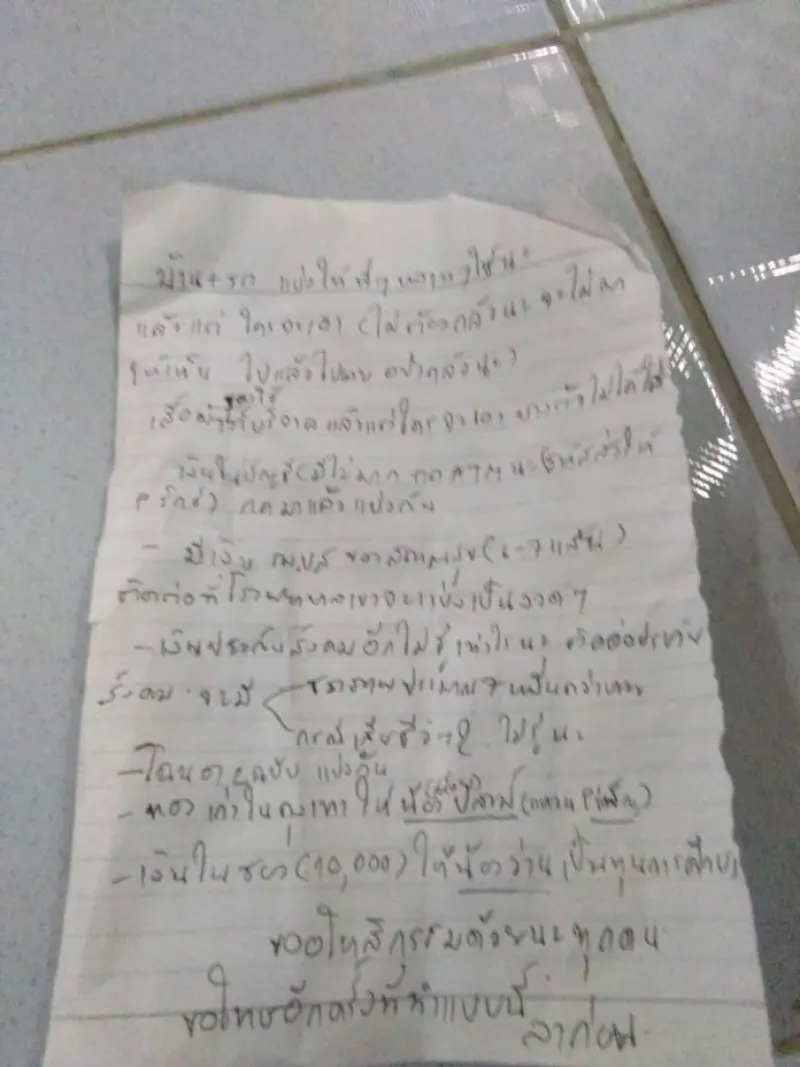 บ้าน+รถ แบ่งให้พี่ๆ หลานๆ ใช้นะ
แล้วแต่ ใครจะเอา (ไม่ต้องกลัวนะ จะไม่มา
ให้เห็น ไปแล้วไปเลย อย่ากลัวนะ)
เสื้อผ้า บริจาค แล้วแต่ใครจะเอา
เงินในบัญชี (มีไม่มาก กด ATM นะ รหัส ให้
) กดมาแล้วแบ่งกัน
- มีเงิน ของ (6-7 แสน)
ติดต่อที่โรงพยาบาลเขาจะแบ่งเป็นงวดๆ
- เงินประกันสังคมอีกไม่รู้เท่าไรนะ ติดต่อประกัน
สังคม จะมี ชราภาพประมาณ 7 หมื่นกว่าบาท
กรณีเสียชีวิต? ไม่รู้นะ
- โฉนด ฉบับ แบ่งกัน
- ทอง ในถุงเทา ให้น้อง (แทน )
- เงินในซอง (10,000) ให้น้องว่าน เป็นทุนการศึกษา
ขออโหสิกรรมด้วยนะทุกคน
ขอโทษอีกครั้งที่ทำแบบนี้
ลาก่อน